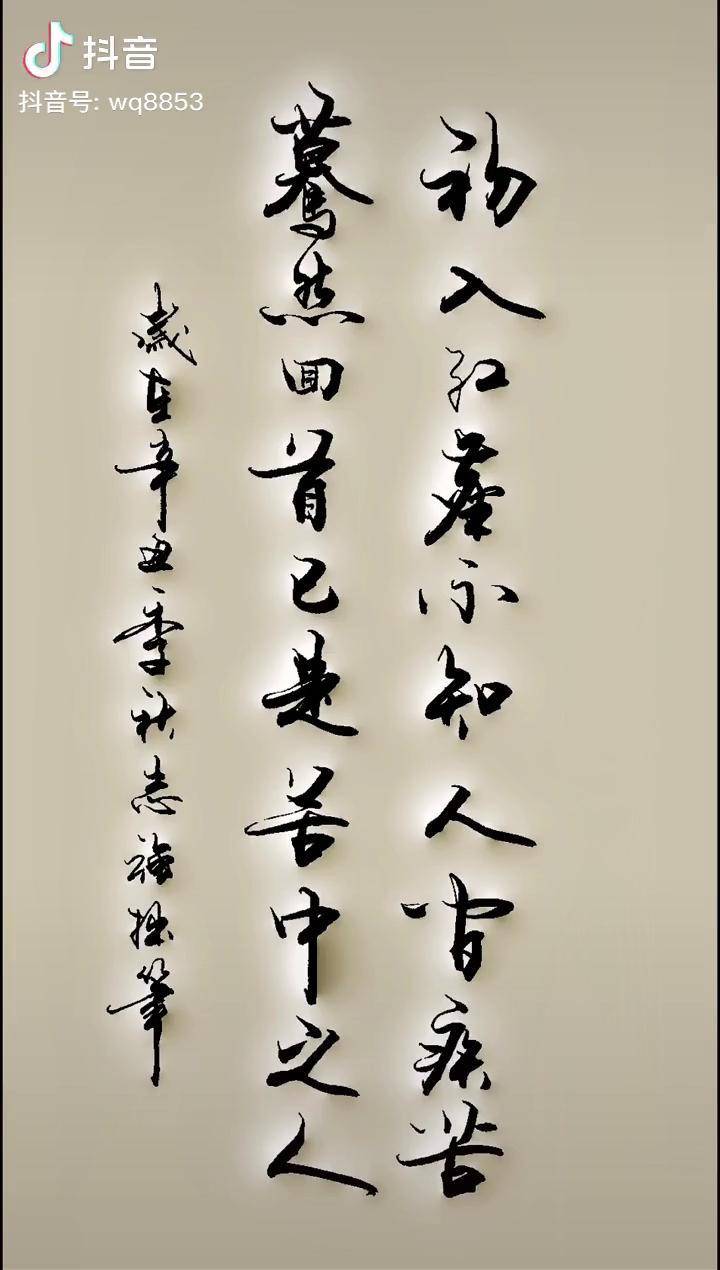 抖音
抖音号: wq8853
初入红尘不知人间疾苦
驀然回首已是苦中之人
歲在辛丑季秋志強拙筆